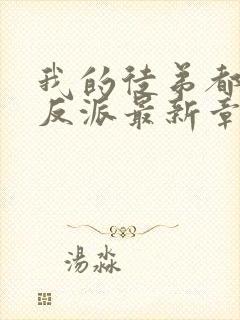 我的徒弟都
反派最新章
汤淼